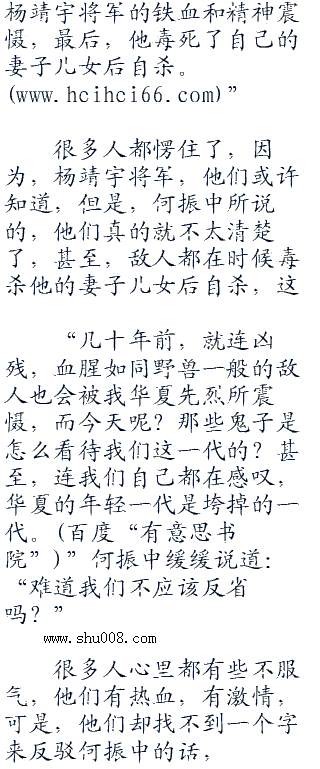 杨靖宇将军的铁血和精神震
慑，最后，他毒死了自己的
妻子儿女后自杀。
(www.hcihci66.com)”
很多人都愣住了，因
为，杨靖宇将军，他们或许
知道，但是，何振中所说
的，他们真的就不太清楚
了，甚至，敌人都在时候毒
杀他的妻子儿女后自杀，这
“几十年前，就连凶
残，血腥如同野兽一般的敌
人也会被我华夏先烈所震
慑，而今天呢？那些鬼子是
怎么看待我们这一代的？甚
至，连我们自己都在感叹，
华夏的年轻一代是垮掉的一
代。(百度“有意思书
院”)”何振中缓缓说道：
“难道我们不应该反省
吗？”
www.shu008.com
很多人心里都有些不服
气，他们有热血，有激情，
可是，他们却找不到一个字
来反驳何振中的话，